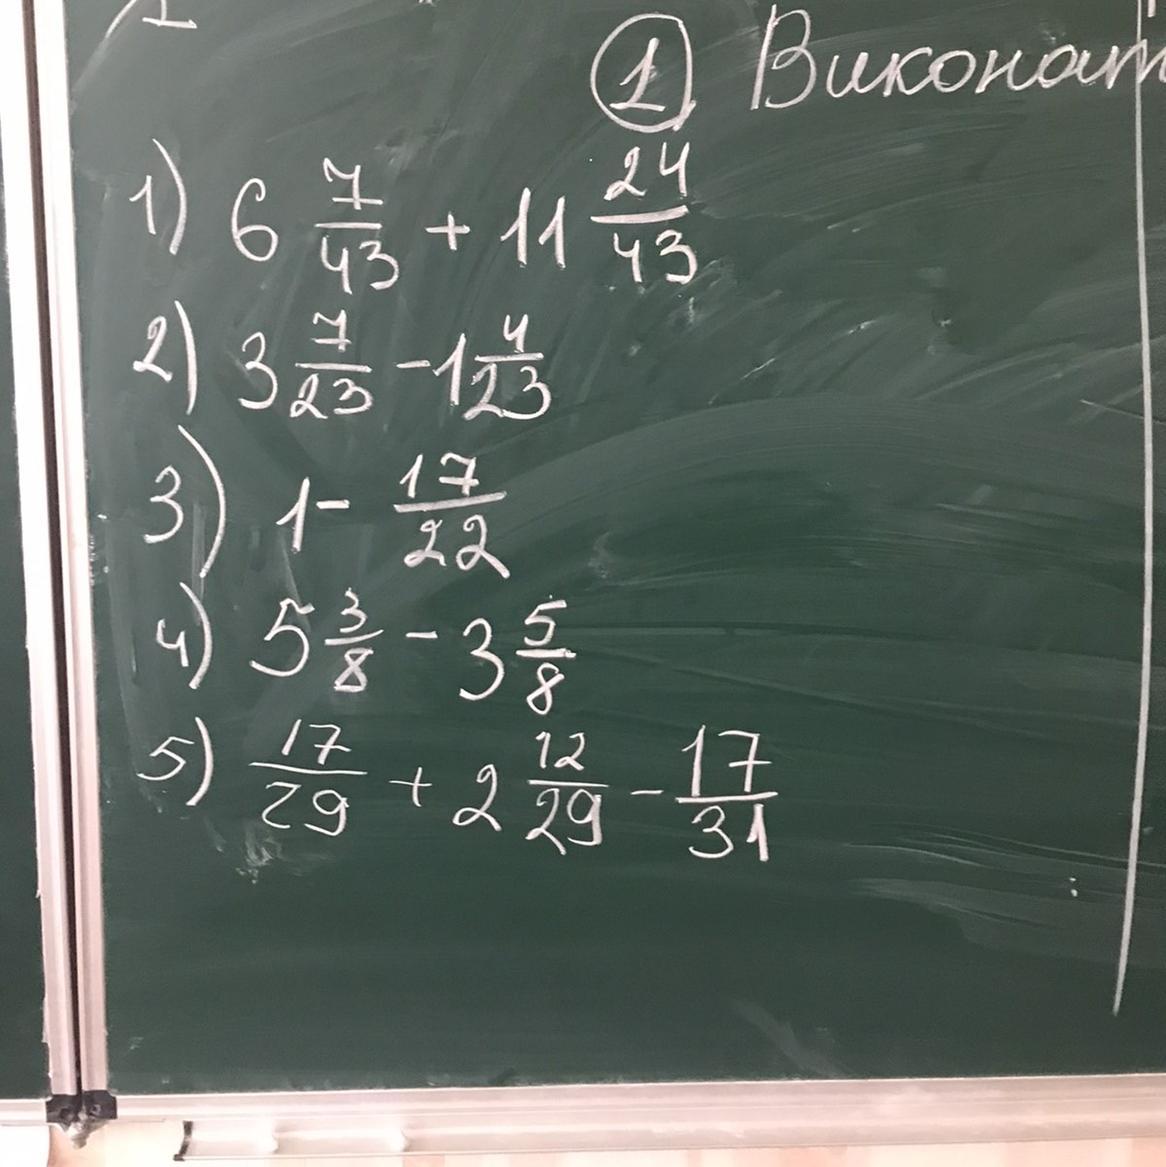 1
1) 6 7/43 + 11 24/43
2) 3 7/23 - 1 4/23
3) 1 - 17/22
4) 5 3/8 - 3 5/8
5) 17/29 + 2 12/29 - 17/31